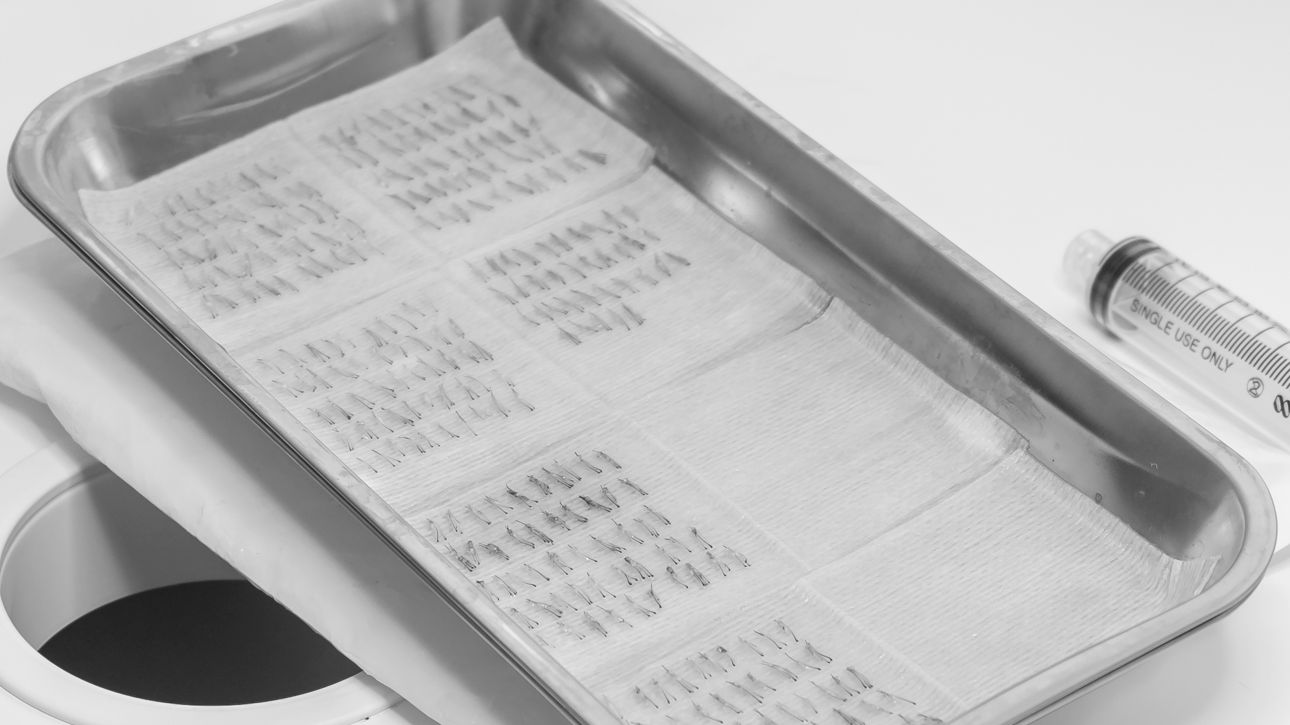 SINGLE USE ONLY ②